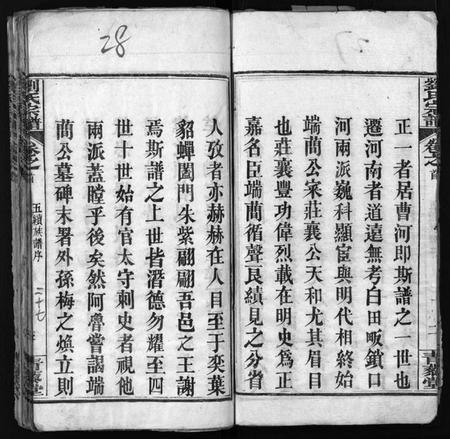 28
劉氏宗譜
卷之首
正一者居曹河即斯譜之一世也
遷河南者道遠無考白田畈鎖口
河兩派巍科顯宦與明代相終始
端藺公家莊襄公天和尤其眉目
也莊襄豐功偉烈載在明史爲正
嘉名臣端藺循聲良績見之分省
青藜堂
劉氏宗譜
卷之首
人攷者亦赫赫在人目至于奕葉
貂蟬闔門朱紫翩翩吾邑之王謝
焉斯譜之上世皆潛德勿耀至四
世十世始有官太守刺史者視他
兩派蓋瞠乎後矣然阿魯嘗謁端
藺公墓碑末署外孫梅之煥立則
五續族譜序
二十七
青藜堂